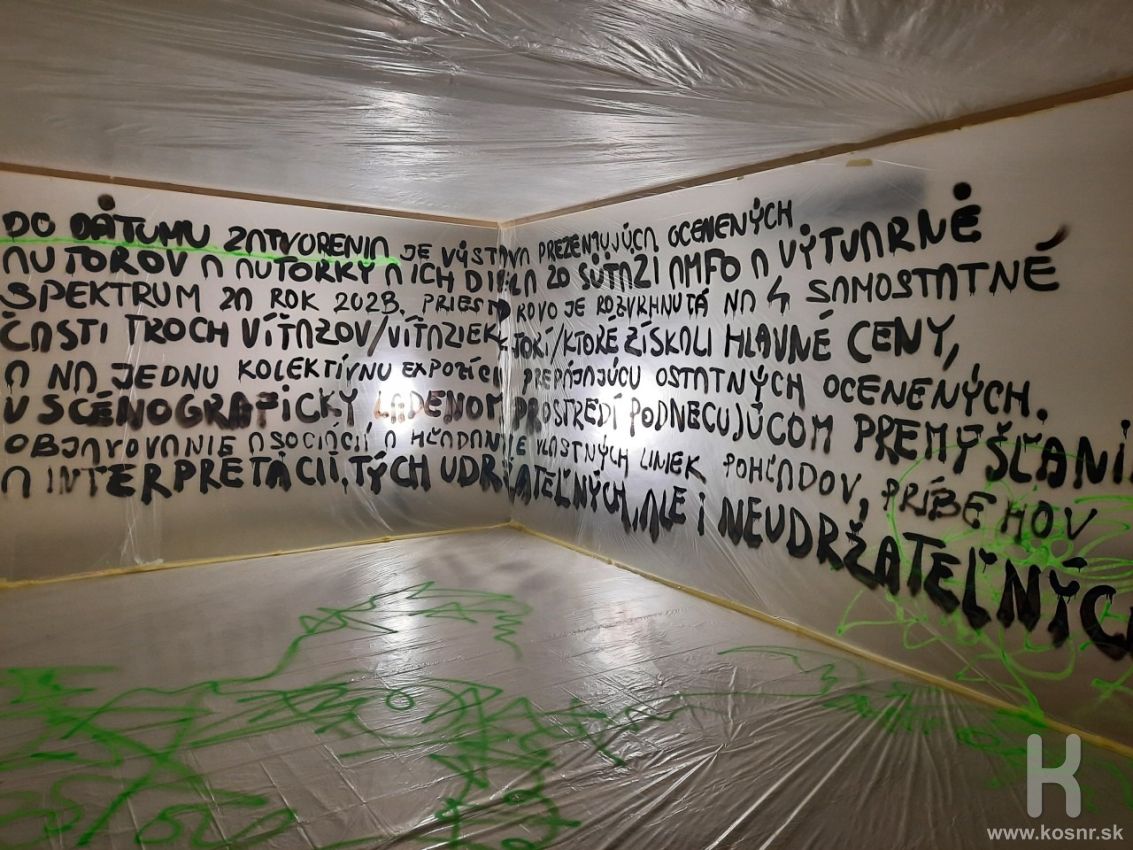 DO DÁTUMU ZATVORENIA JE VÝSTAVA PREZENTUJÚCA OCENENÝCH
AUTOROV A AUTORKY A ICH DIELA ZO SÚŤAŽÍ AMFO A VÝTVARNÉ
SPEKTRUM ZA ROK 2023. PRIESTOROVO JE ROZVRHNUTÁ NA 4 SAMOSTATNÉ
ČASTI TROCH VÍŤAZOV/VÍŤAZIEK, KTORÍ/KTORÉ ZÍSKALI HLAVNÉ CENY,
A NA JEDNU KOLEKTÍVNU EXPOZÍCIU PREPÁJAJÚCU OSTATNÝCH OCENENÝCH.
V SCÉNOGRAFICKY LADENOM PROSTREDÍ PODNECUJÚCOM PREMÝŠĽANIE
OBJAVOVANIE ASOCIÁCIÍ A HĽADANIE VLASTNÝCH LINIEK POHĽADOV, PRÍBEHOV
A INTERPRETÁCIÍ, TÝCH UDRŽATEĽNÝCH, ALE I NEUDRŽATEĽNÝCH
K
www.kosnr.sk